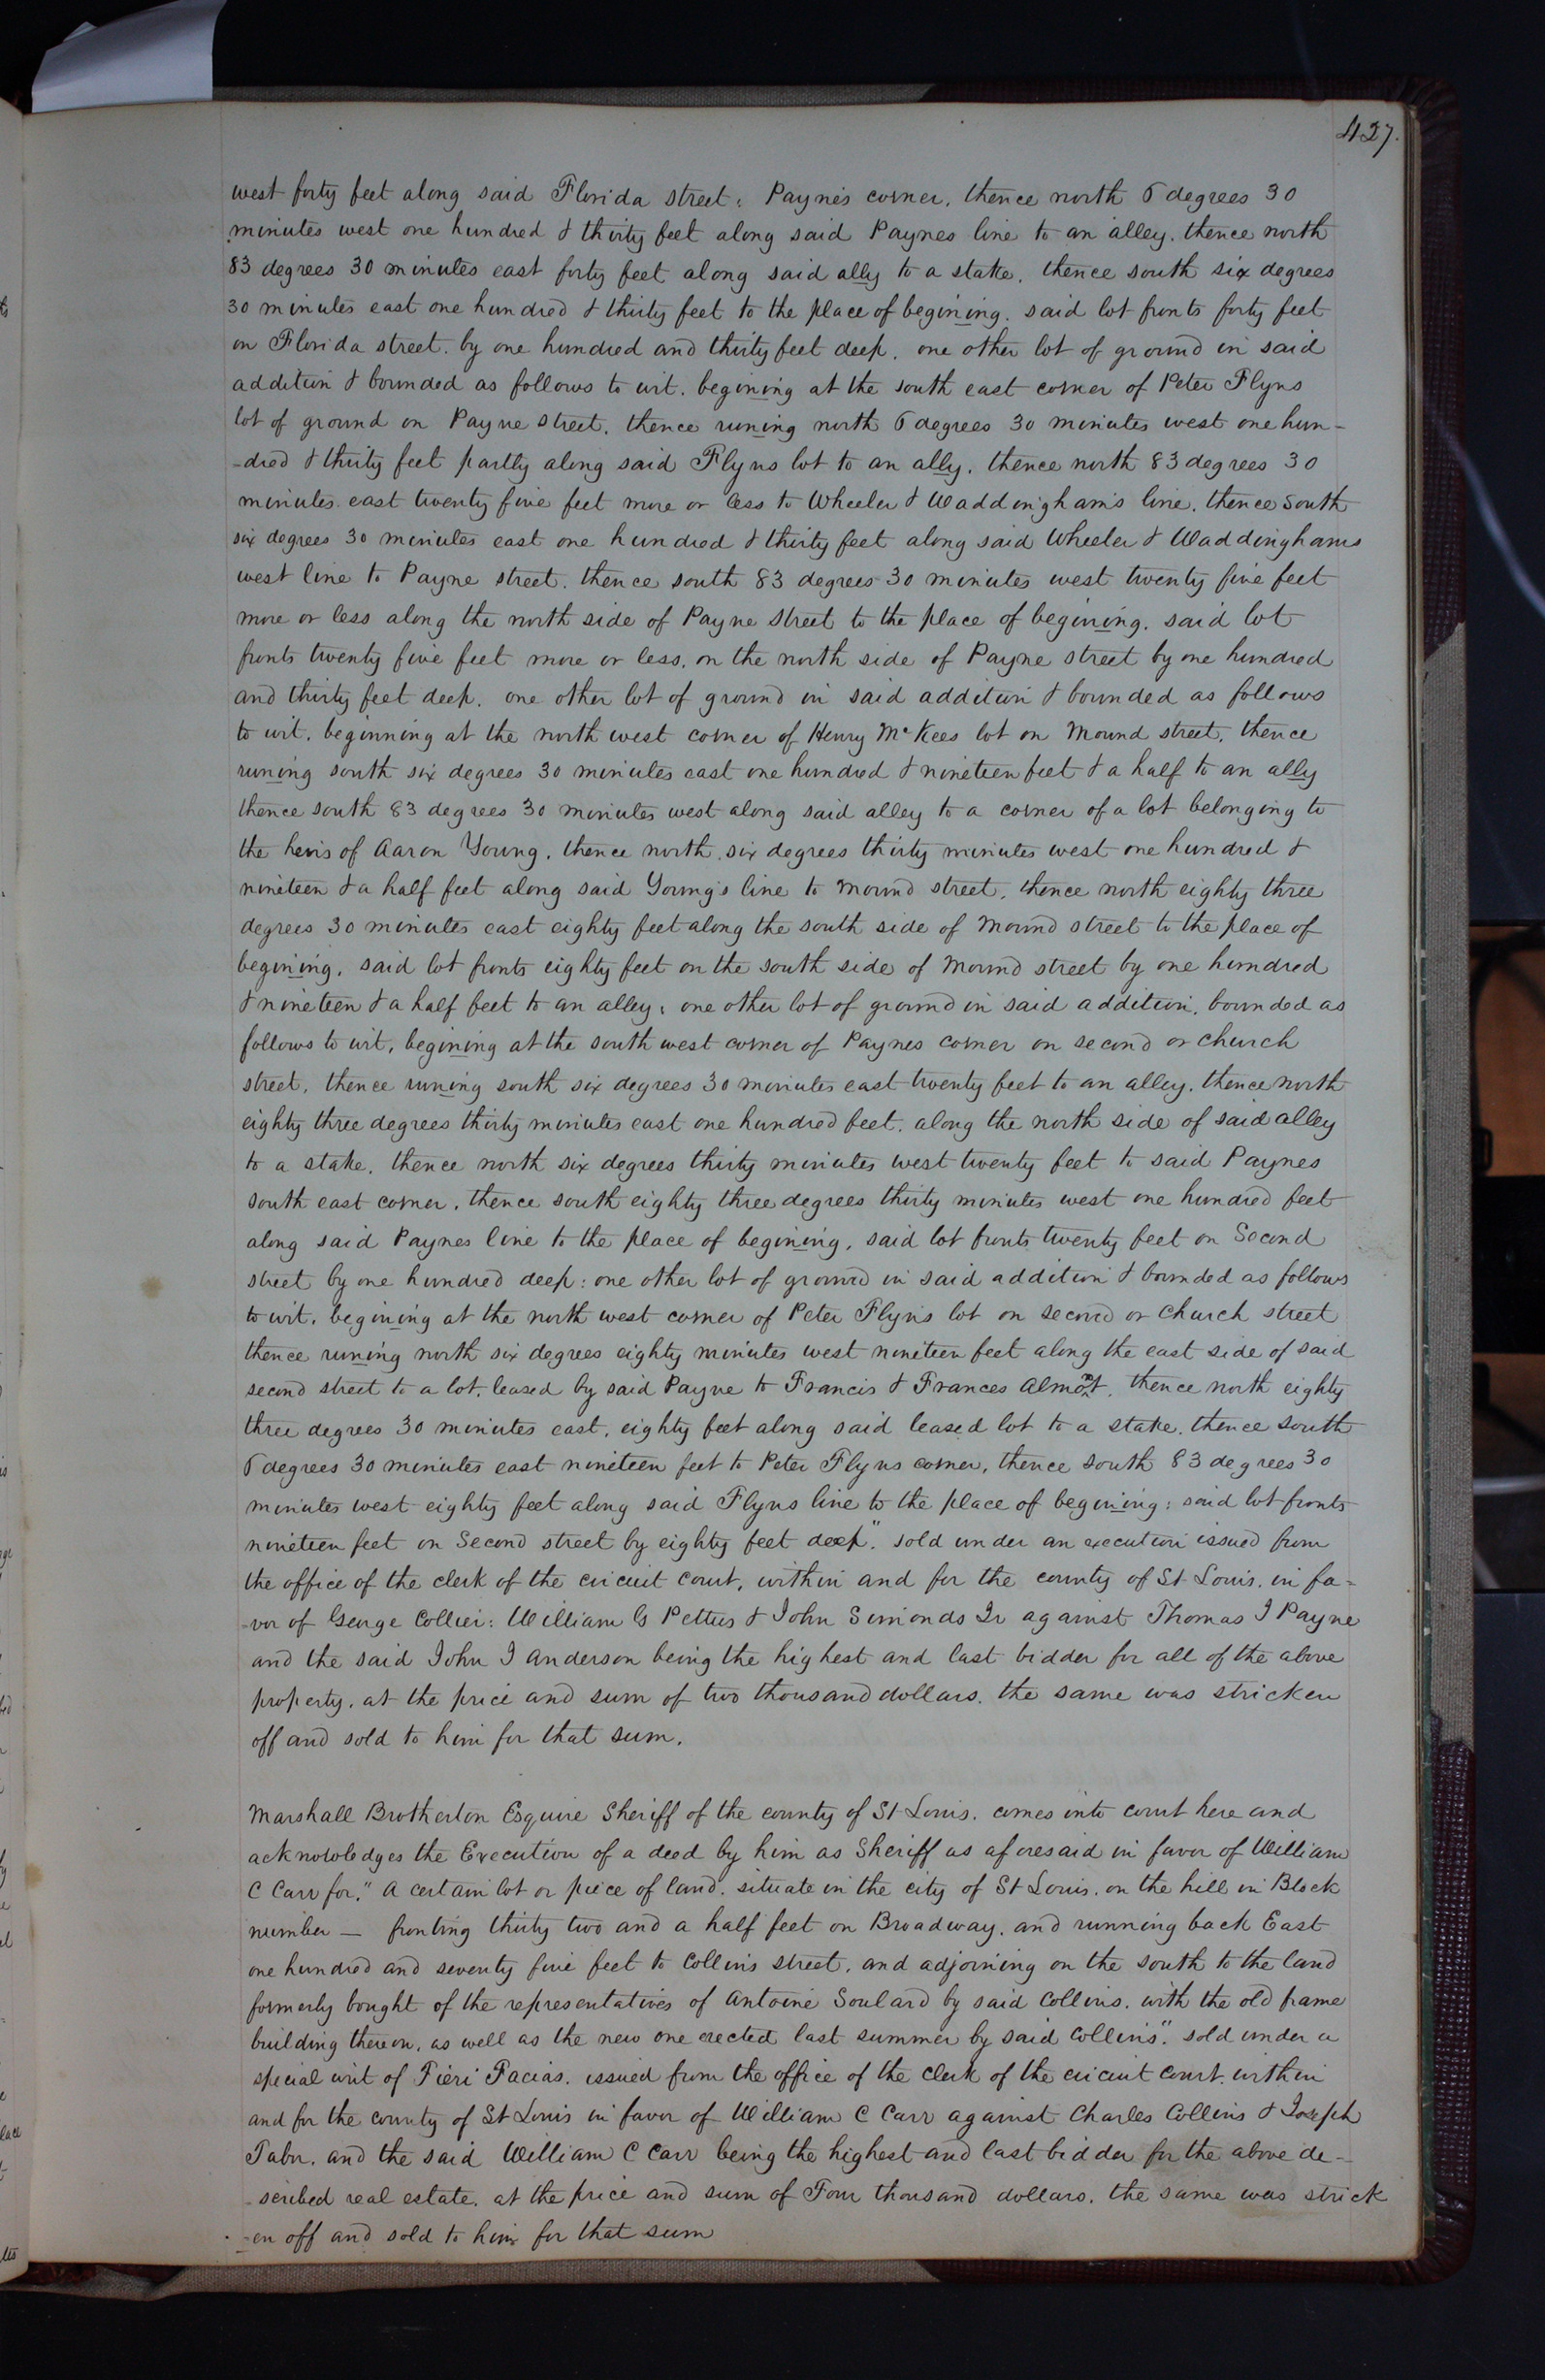 427.
west forty feet along said Florida street, Payne's corner, thence north 6 degrees 30
minutes west one hundred & thirty feet along said Paynes line to an alley. thence north
83 degrees 30 minutes east forty feet along said ally to a stake. thence south six degrees
30 minutes east one hundred & thirty feet to the place of begining. said lot fronts forty feet
on Florida street. by one hundred and thirty feet deep. one other lot of ground in said
addition & bounded as follows to wit. begining at the south east corner of Peter Flyns
lot of ground on Payne street. thence runing north 6 degrees 30 minutes west one hun-
-dred & thirty feet partly along said Flyns lot to an ally. thence north 83 degrees 30
minutes east twenty five feet more or less to Wheeler & Waddingham's line. thence south
six degrees 30 minutes east one hundred & thirty feet along said Wheeler & Waddinghams
west line to Payne street. thence south 83 degrees 30 minutes west twenty five feet
more or less along the north side of Payne street to the place of begining. said lot
fronts twenty five feet more or less, on the north side of Payne street by one hundred
and thirty feet deep. one other lot of ground in said addition & bounded as follows
to wit. beginning at the north west corner of Henry McKees lot on Mound street, thence
runing south six degrees 30 minutes east one hundred & nineteen feet & a half to an ally
thence south 83 degrees 30 minutes west along said alley to a corner of a lot belonging to
the heirs of Aaron Young, thence north six degrees thirty minutes west one hundred &
nineteen & a half feet along said Young's line to Mound street, thence north eighty three
degrees 30 minutes east eighty feet along the south side of Mound street to the place of
begining. said lot fronts eighty feet on the south side of Mound street by one hundred
& nineteen & a half feet to an alley, one other lot of ground in said addition, bounded as
follows to wit, begining at the south west corner of Paynes corner on second or church
street, thence runing south six degrees 30 minutes east twenty feet to an alley, thence north
eighty three degrees thirty minutes east one hundred feet, along the north side of said alley
to a stake, thence north six degrees thirty minutes west twenty feet to said Paynes
south east corner, thence south eighty three degrees thirty minutes west one hundred feet
along said Paynes line to the place of begining, said lot fronts twenty feet on Second
street by one hundred deep: one other lot of ground in said addition & bounded as follows
to wit. begining at the north west corner of Peter Flyn's lot on second or church street
thence runing north six degrees eighty minutes west nineteen feet along the east side of said
second street to a lot, leased by said Payne to Francis & Frances Almont, thence north eighty
three degrees 30 minutes east, eighty feet along said leased lot to a stake. thence south
6 degrees 30 minutes east nineteen feet to Peter Flyns corner, thence south 83 degrees 30
minutes west eighty feet along said Flyns line to the place of begining: said lot fronts
nineteen feet on Second street by eighty feet deep." sold under an execution issued from
the office of the clerk of the circuit court, within and for the county of St Louis. in fa-
-vor of George Collier: William G Pettus & John Simonds Jr against Thomas J Payne
and the said John J Anderson being the highest and last bidder for all of the above
property, at the price and sum of two thousand dollars. the same was stricken
off and sold to him for that sum.
Marshall Brotherton Esquire Sheriff of the county of St Louis. comes into court here and
acknowledges the Execution of a deed by him as Sheriff as aforesaid in favor of William
C Carr for, "A certain lot or piece of land. situate in the city of St Louis. on the hill in Block
number — fronting thirty two and a half feet on Broadway. and running back East
one hundred and seventy five feet to Collins street, and adjoining on the south to the land
formerly bought of the representatives of Antoine Soulard by said Collins. with the old frame
building thereon, as well as the new one erected last summer by said Collins". sold under a
special writ of Fieri Facias. issued from the office of the clerk of the circuit court. within
and for the county of St Louis in favor of William C Carr against Charles Collins & Joseph
Tabor. and the said William C Carr being the highest and last bidder for the above de-
-scribed real estate. at the price and sum of Four thousand dollars. the same was strick
-en off and sold to him for that sum